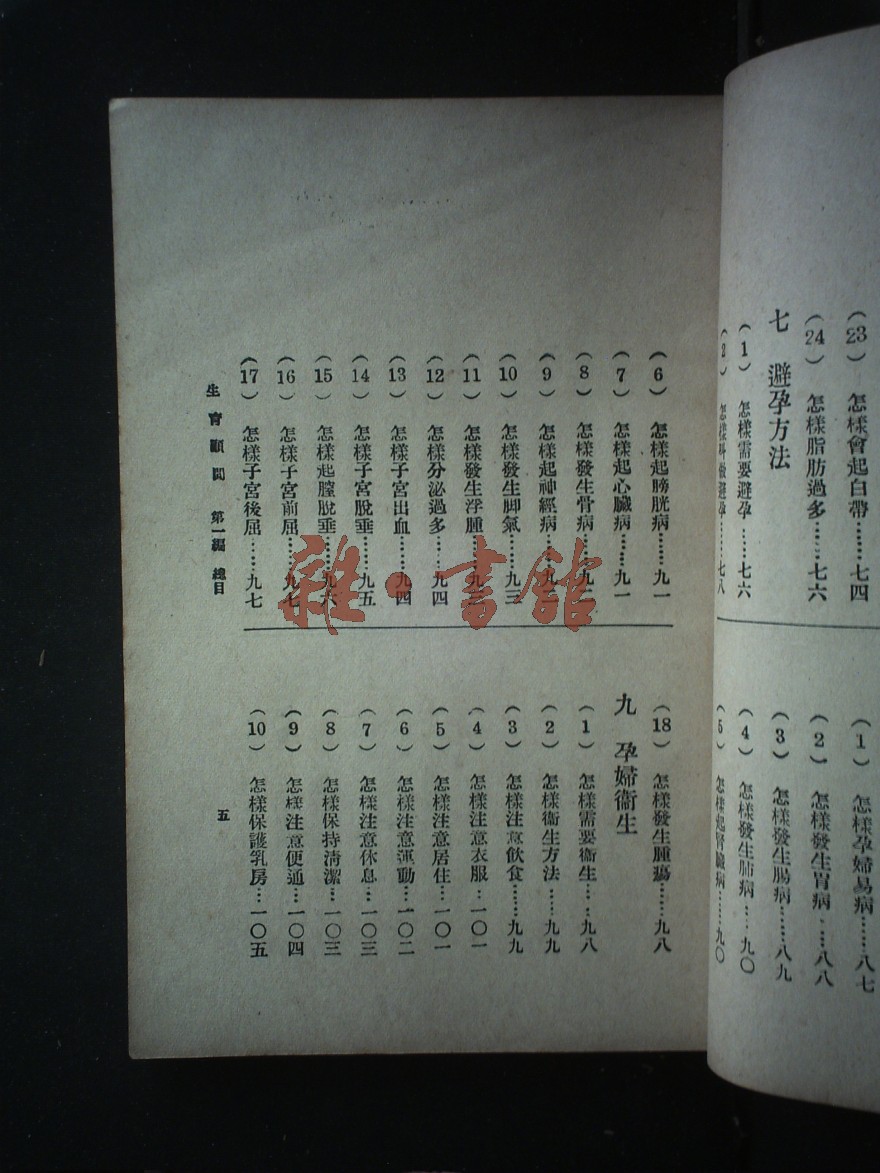 (23) 怎樣會起白帶……七四
(24) 怎樣脂肪過多……七六
七 避孕方法
(1) 怎樣需要避孕……七六
(2) 怎樣科學避孕……七八
(1) 怎樣孕婦易病……八七
(2) 怎樣發生胃病……八八
(3) 怎樣發生腸病……八九
(4) 怎樣發生肺病…九〇
(5) 怎樣起腎臟病……九〇
(6) 怎樣起膀胱病……九一
(7) 怎樣起心臟病……九一
(8) 怎樣發生骨病……九二
(9) 怎樣起神經病……九
(10) 怎樣發生脚氣……九三
(11) 怎樣發生浮腫……九三
(12) 怎樣分泌過多……九四
(13) 怎樣子宮出血……九四
(14) 怎樣子宮脫垂……九五
(15) 怎樣起膣脫垂……九六
(16) 怎樣子宮前屈……九七
(17) 怎樣子宮後屈……九七
(18) 怎樣發生腫瘍……九八
九 孕婦衞生
(1) 怎樣需要衞生……九八
(2) 怎樣衞生方法……九九
(3) 怎樣注意飲食……九九
(4) 怎樣注意衣服…一〇一
(5) 怎樣注意居住…一〇一
(6) 怎樣注意運動…一〇二
(7) 怎樣注意休息…一〇三
(8) 怎樣保持清潔…一〇三
(9) 怎樣注意便通…一〇四
(10) 怎樣保護乳房…一〇五
生育顧問 第一編 總目
五
雜·書館